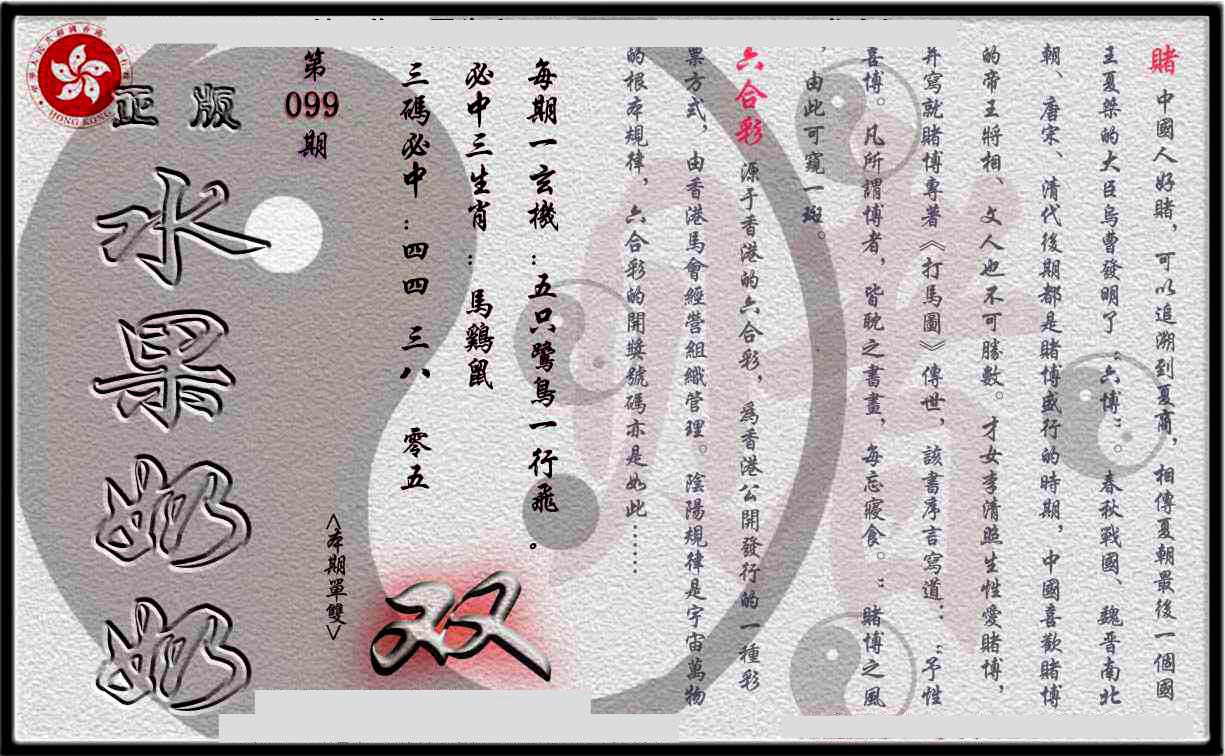 賭 中國人好賭，可以追溯到夏商，相傳夏朝最後一個國
王夏桀的大臣烏曹發明了“六博”。春秋戰國、魏晋南北
朝、唐宋、清代後期都是賭博盛行的時期，中國喜歡賭博
的帝王將相、文人也不可勝數。才女李清照生性愛賭博，
并寫就賭博專著《打馬圖》傳世，該書序言寫道：“予性
喜博。凡所謂博者，皆耽之書畫，每忘寢食。“賭博之風
，由此可窺一斑。
六合彩 源于香港的六合彩，為香港公開發行的一種彩
票方式，由香港馬會經營組織管理。陰陽規律是宇宙萬物
的根本規律，六合彩的開獎號碼亦是如此……
每期一玄機：五只鷺鳥一行飛。
必中三生肖：馬鷄鼠
三碼必中：四四 三八 零五
双
<本期單雙>
第
099
期
正版
水果奶奶
HONG KONG